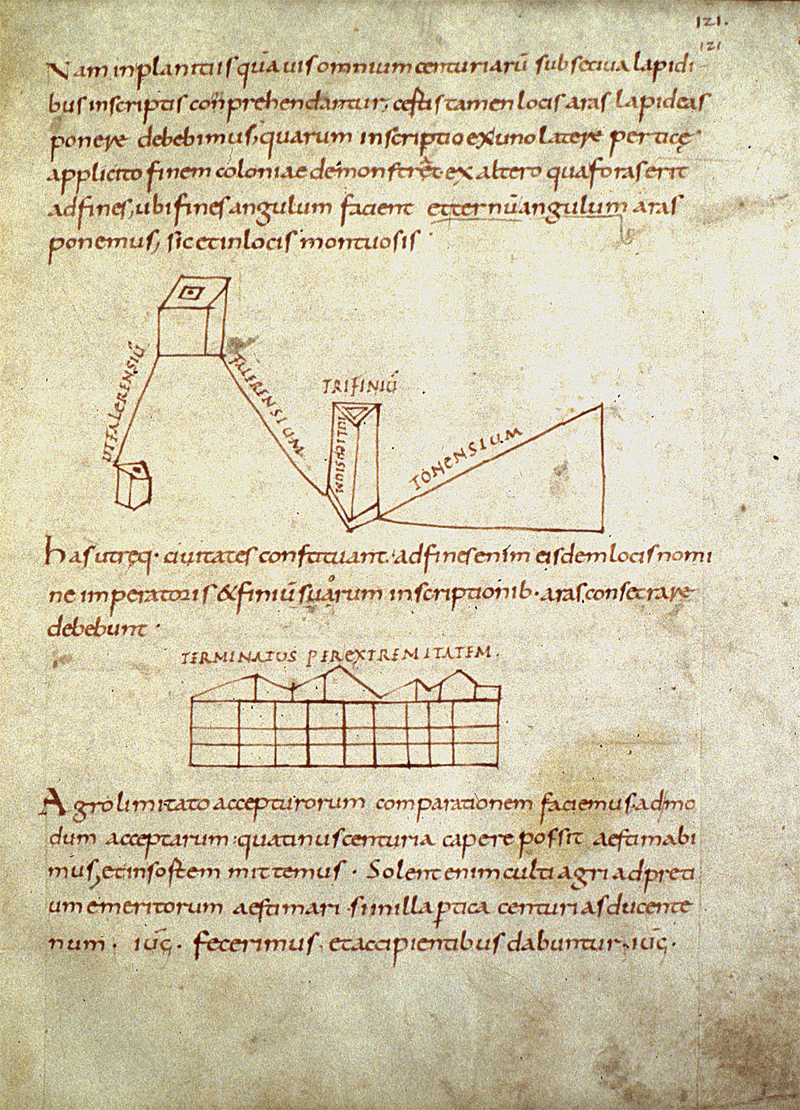 121.
121
Nam inplanitiis quauis omnium centuriarū subseciua lapidi
bus inscriptis conprehendantur, certis tamen locis aras lapideas
ponere debebimus, quarum inscriptio ex uno latere perticę
applicito finem coloniae demonstret ex altero qua foras erit
adfines, ubi fines angulum facient et ternū angulum aras
ponemus, sic et in locis montuosis
UTFALERENSIŪ
FALERENSIUM
TRIFINIŪ
IONENSIUM
has utreq· ciuitates constituant. adfines enim eisdem locis nomi
ne imperatoris & finiū suarum inscriptionib· aras consecrare
debebunt·
TERMINATUS PER EXTREMITATEM.
Agro limitato accepturorum comparationem faciemus, ad mo
dum acceptarum· quatinus centuria capere possit aestimabi
mus, et in sortem mittemus· Solent enim culti agri ad preti
um emeritorum aestimari· si in illa ꝑtica centurias ducente
num· iuḡ· fecerimus, et accipientibus dabuntur· iuḡ·